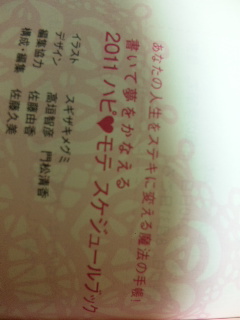 あなたの人生をステキに変える魔法の手帳!
書いて夢をかなえる
2011 ハピ♥モテ スケジュールブック
イラスト スギザキメグミ
デザイン 高垣智彦 門松清香
編集協力 佐藤由香
構成・編集 佐藤久美